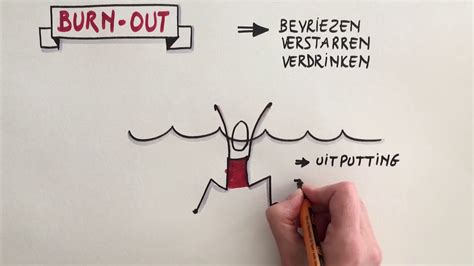 BURN-OUT
→ BEVRIEZEN
VERSTARREN
VERDRINKEN
→ UITPUTTING